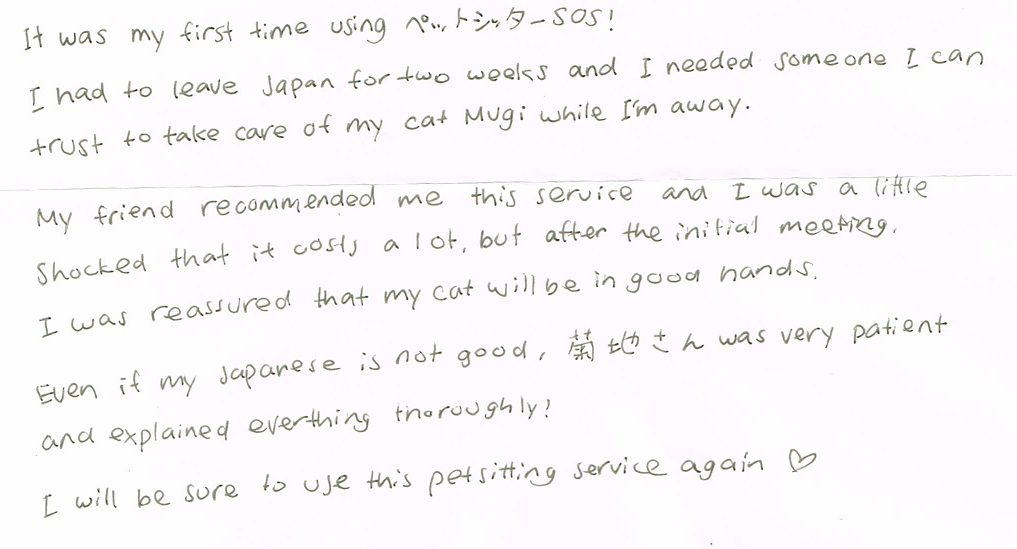 It was my first time using ペットシッターSOS!
I had to leave Japan for two weeks and I needed someone I can
trust to take care of my cat Mugi while I'm away.
My friend recommended me this service and I was a little
shocked that it costs a lot, but after the initial meeting,
I was reassured that my cat will be in good hands.
Even if my Japanese is not good, 菊地さん was very patient
and explained everthing thoroughly!
I will be sure to use this petsitting service again ♡